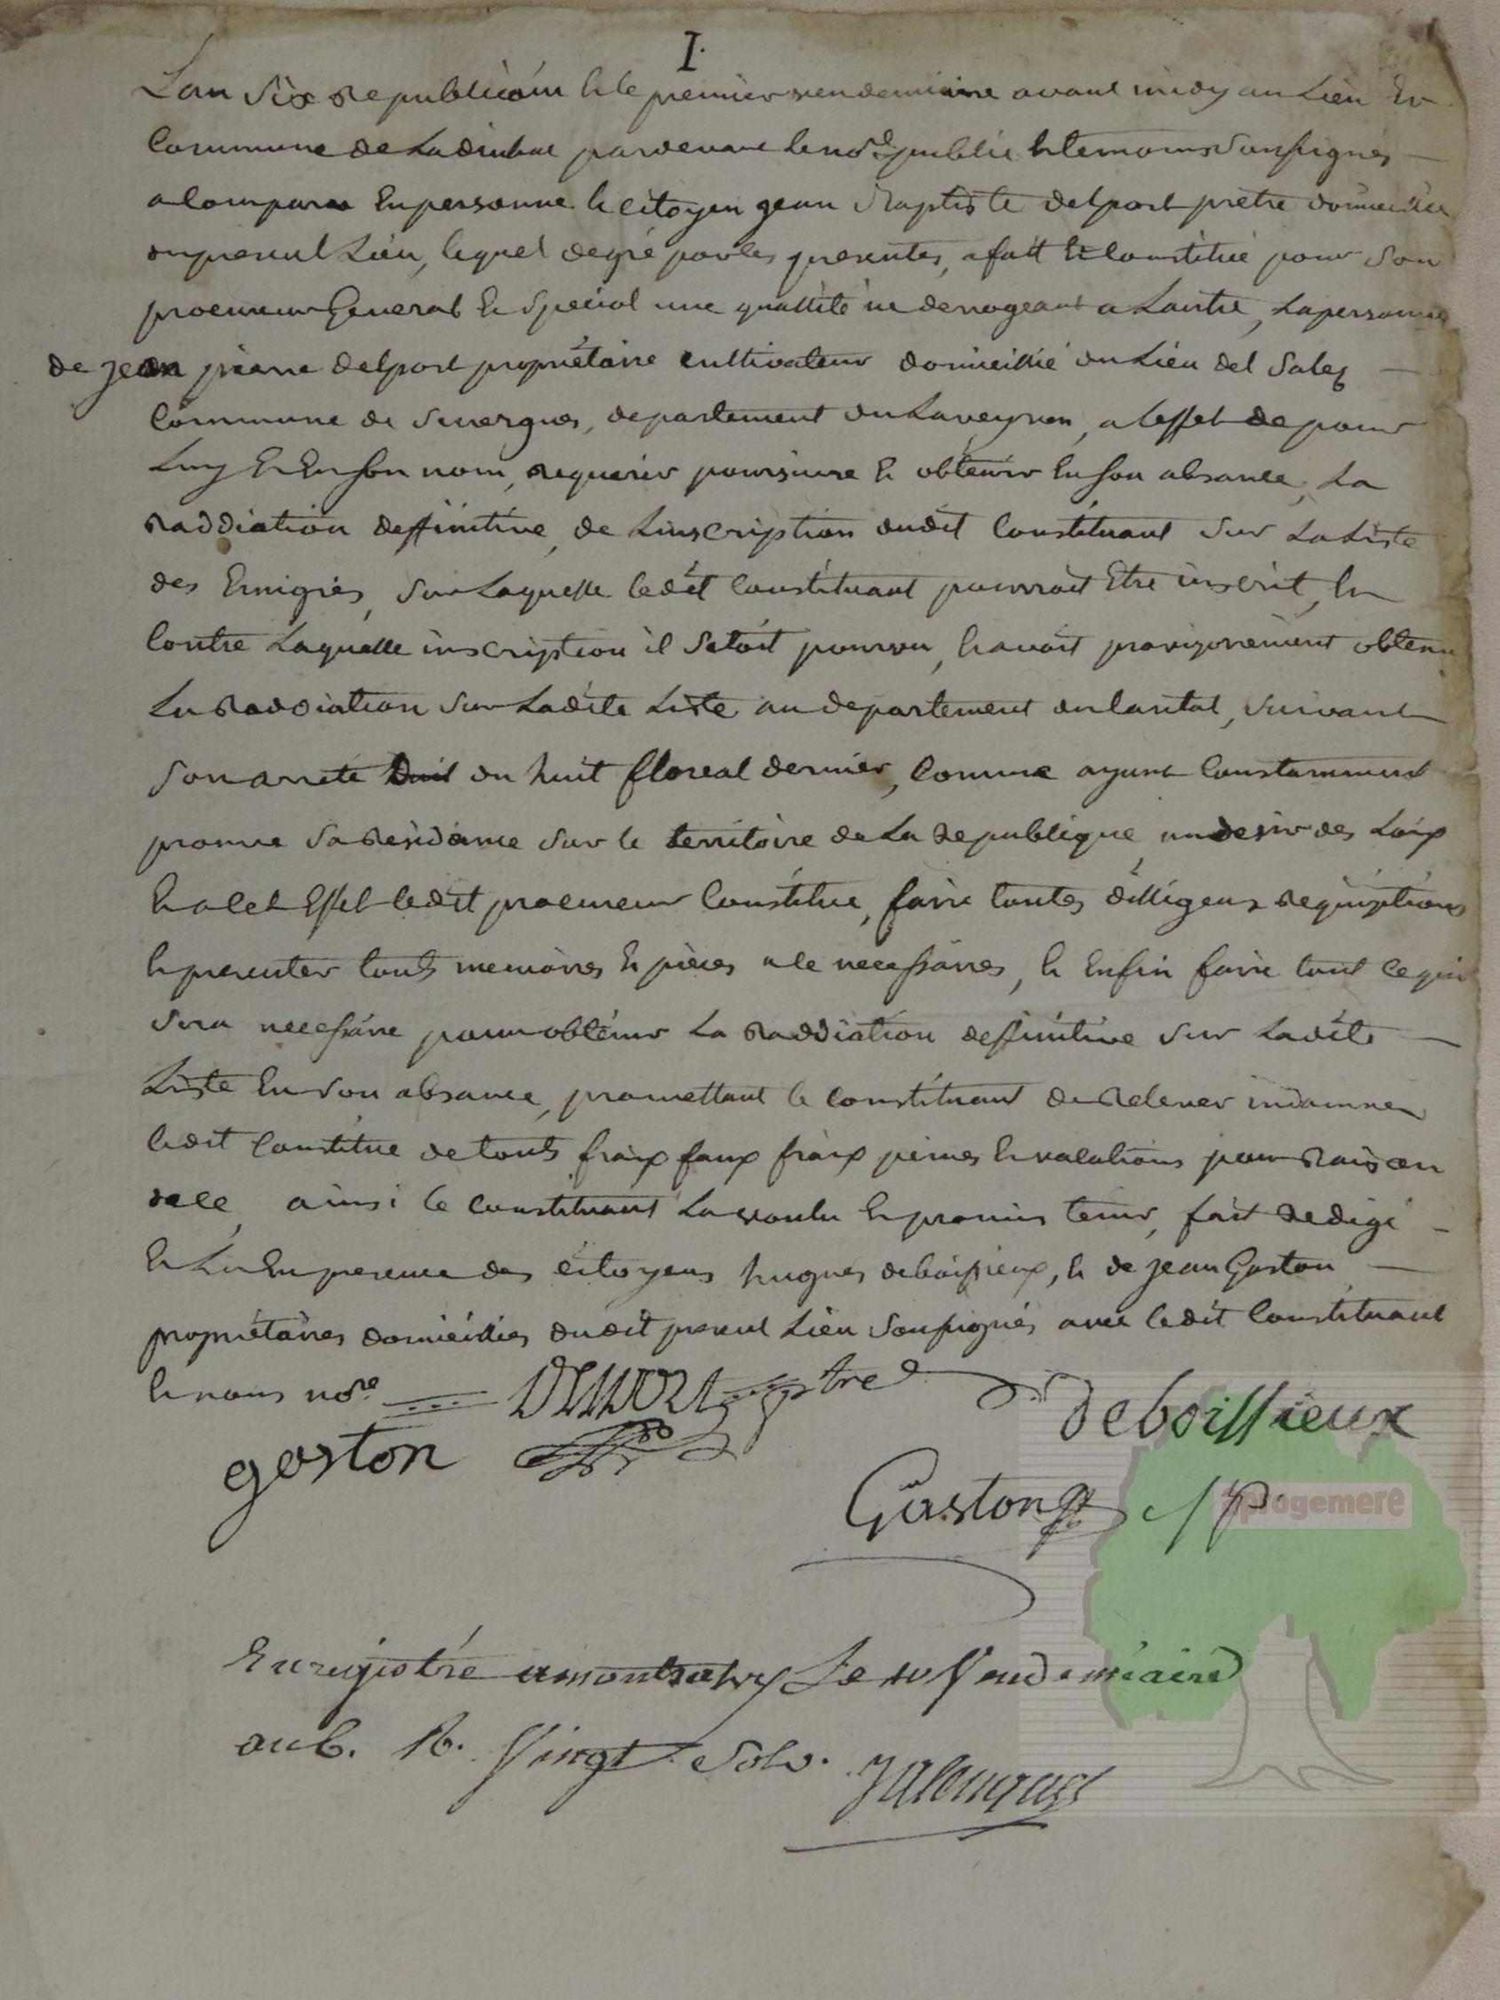 I.
Lan Six Republicain & le premier vendemiaire avant midy au Lieu Et
Commune de Ladinhac pardevant le nore public & temoins Soussignés
a Comparu En personne le citoyen jean Baptiste delport pretre domicilié
du present Lieu, lequel de gré par les presentes, a fait & Constitué pour Son
procureur General & Special une qualité ne derrogeant a Lautre, La personne
de jean pierre delport propriétaire cultivateur domicillié du Lieu del Sales
Commune de Senergues, departement du Laveyron, a Leffet de pour
Luy & En Son nom, requerir poursuivre & obtenir En Son absance, La
Raddiation deffinitive, de Linscription dudit Constituant Sur La Liste
des Emigrés, Sur Laquelle ledit Constituant pourroit Etre inscrit, &
Contre Laquelle inscription il Setoit pourvu, & avoit provizoirement obtenu
La Raddiation Sur Ladite Liste au departement du Cantal, Suivant
Son arreté du huit floreal dernier, Comme ayant Constamment
prouvé Sa Residance Sur le territoire de La Republique, au desir des Loix
& a Cet Effet ledit procureur Constitué, faire toutes dilligeances Requisitions
& presenter touts memoires & pieces a ce necessaires, & Enfin faire tout ce qui
Sera necessaire pour obtenir La Raddiation deffinitive Sur Ladite
Liste En Son absance, promettant le constituant de Relever indamne
ledit Constitué de touts fraix faux fraix peines & vacations pour Raison
de ce, ainsi le constituant La voulu & promis tenir, fait Redigé
& Lu En presence des citoyens hugues deboissieux, & de jean Gaston
propriétaires domicilliés dudit present Lieu Soussignés avec ledit Constituant
& nous nore DELPORT ptre
deboissieux
gaston
Gaston
Enregistré a montsalvy Le 10 Vendemiaire
an 6. R. Vingt Sols.